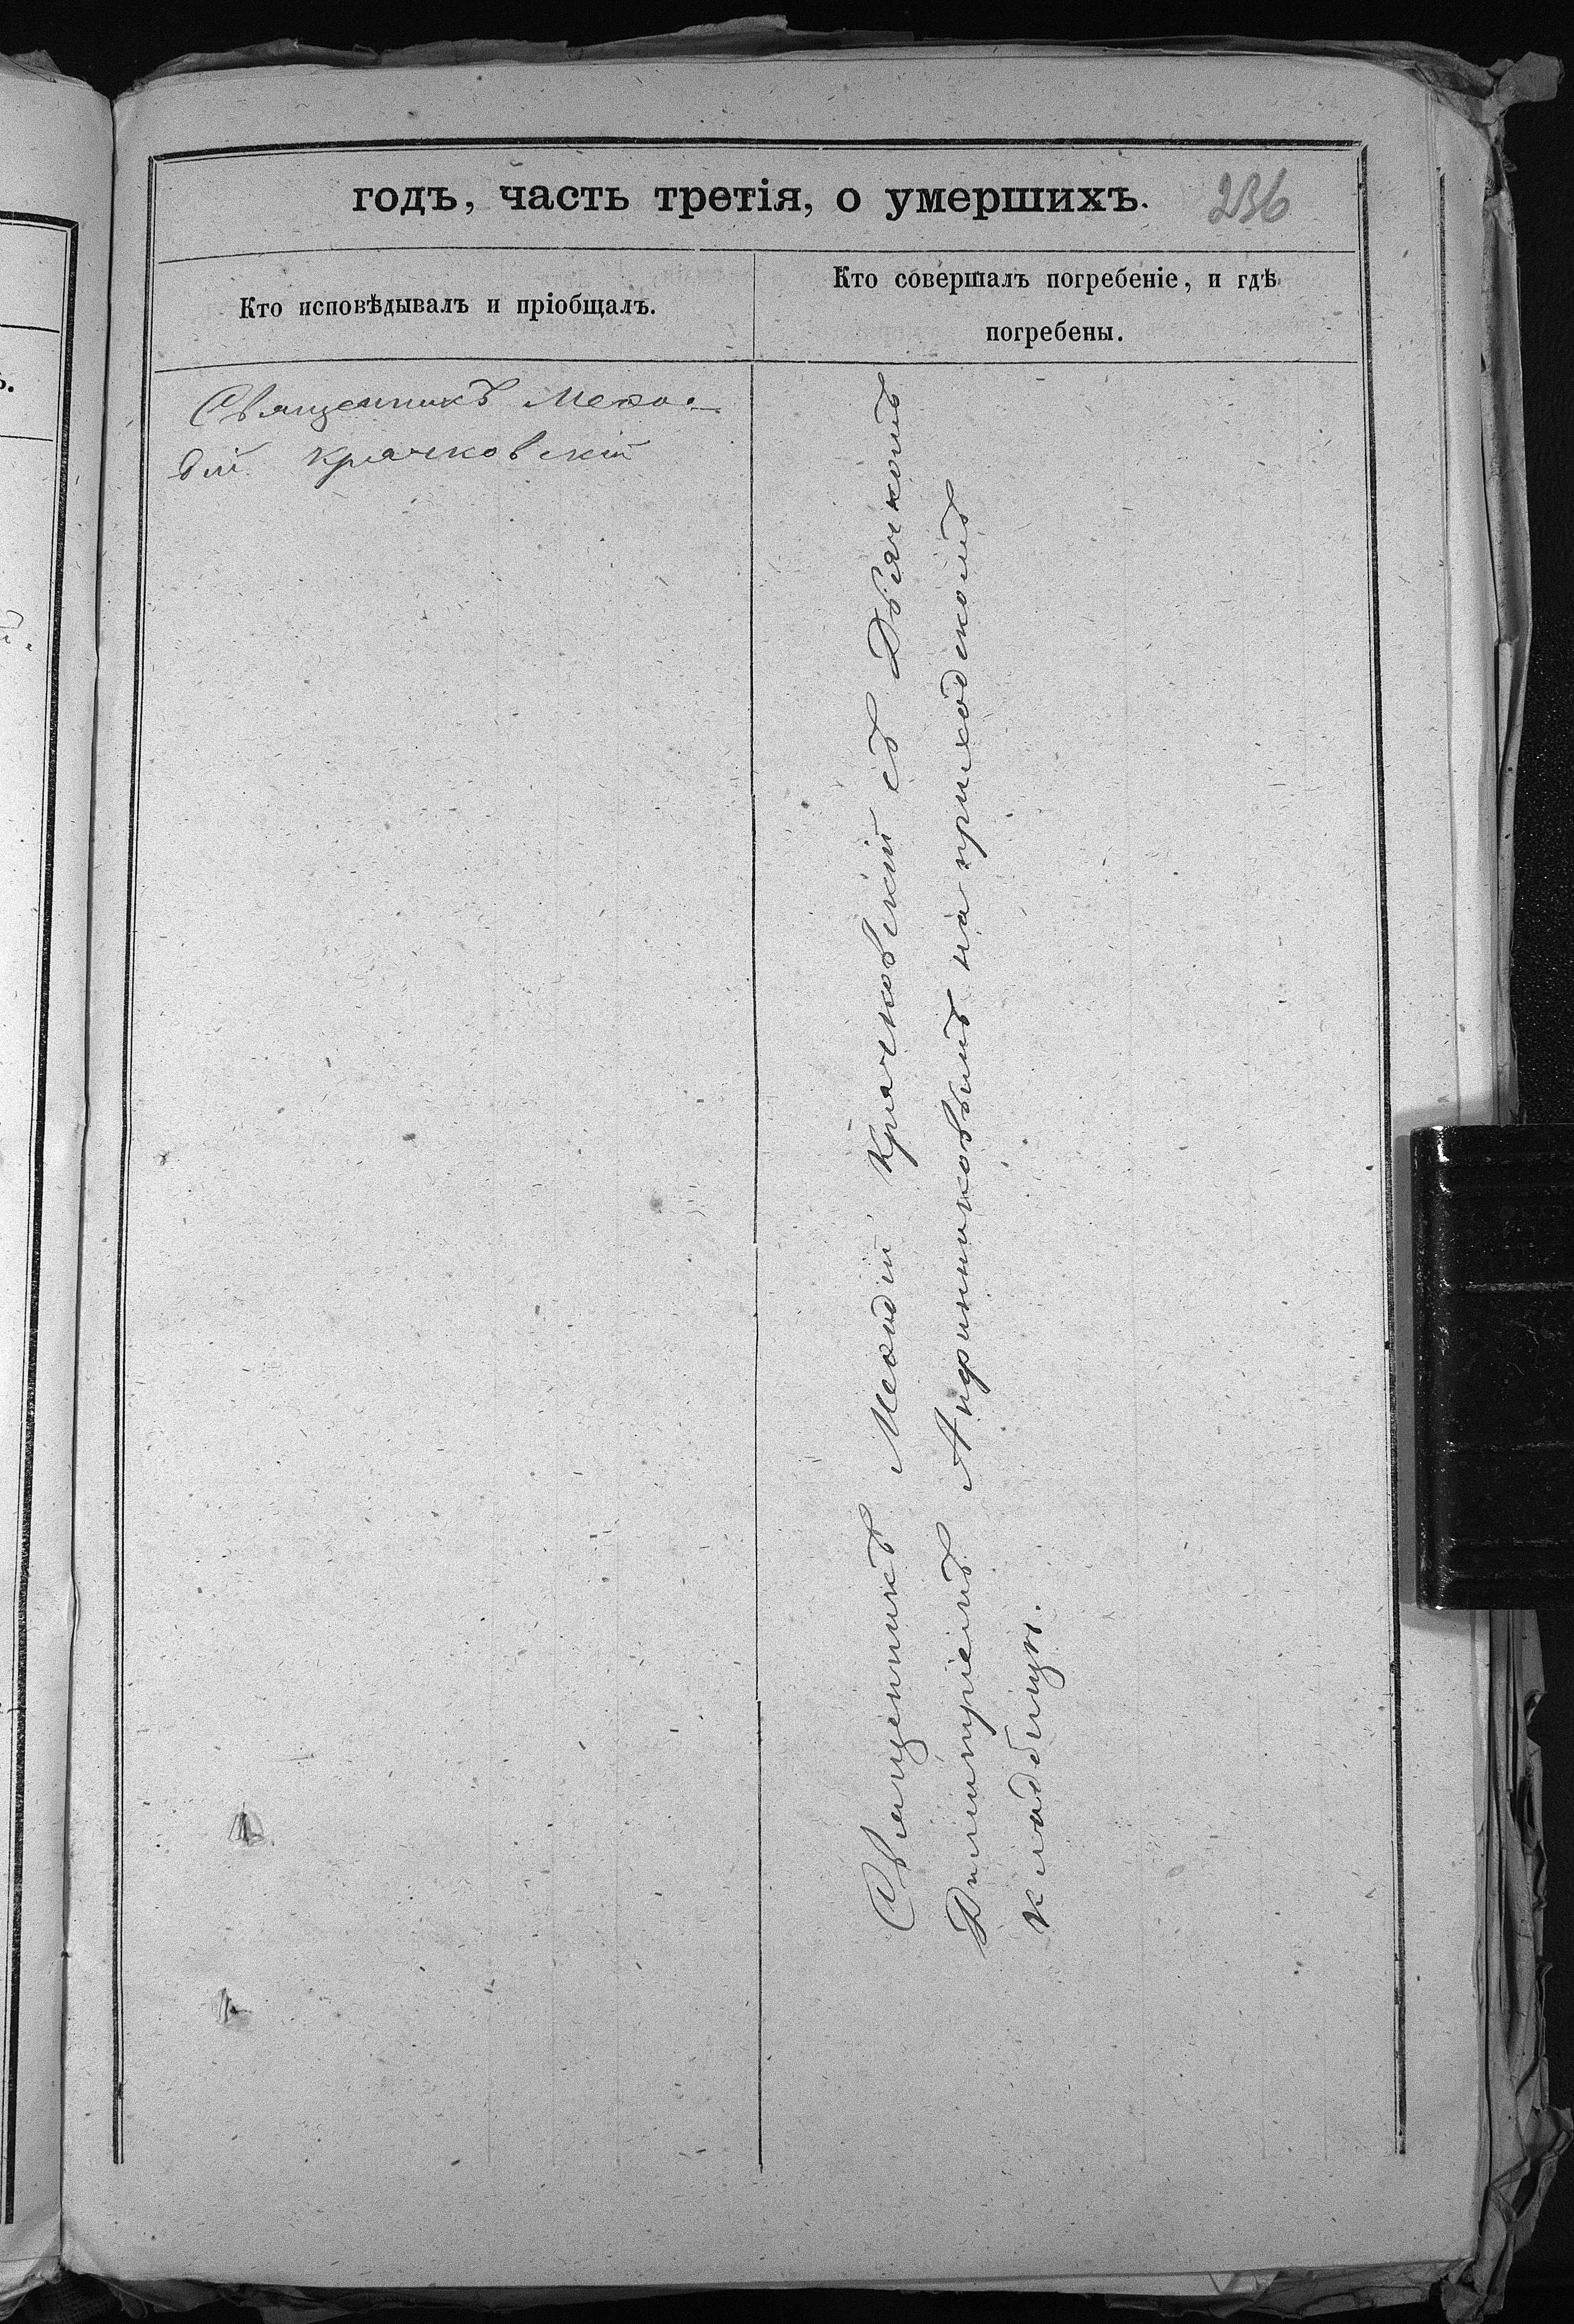 годъ, часть третія, о умершихъ.
236
Кто исповѣдывалъ и пріобщалъ.
Кто совершалъ погребеніе, и гдѣ
погребены.
Священникъ Меѳо-
дій Крачковскій
Священникъ Меѳодій Крачковскій съ Дьячкомъ
Димитріемъ на приходскомъ
кладбищѣ.